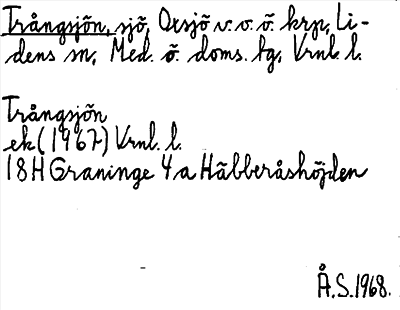 Trångsjön, sjö, Oxsjö v. o. ö. krp, Li-
dens sn, Med. ö. doms. hg, Vrnl. l.
Trångsjön
ek (1967) Vrnl. l.
18H Graninge 4a Häbberåshöjden
Å.S.1968.